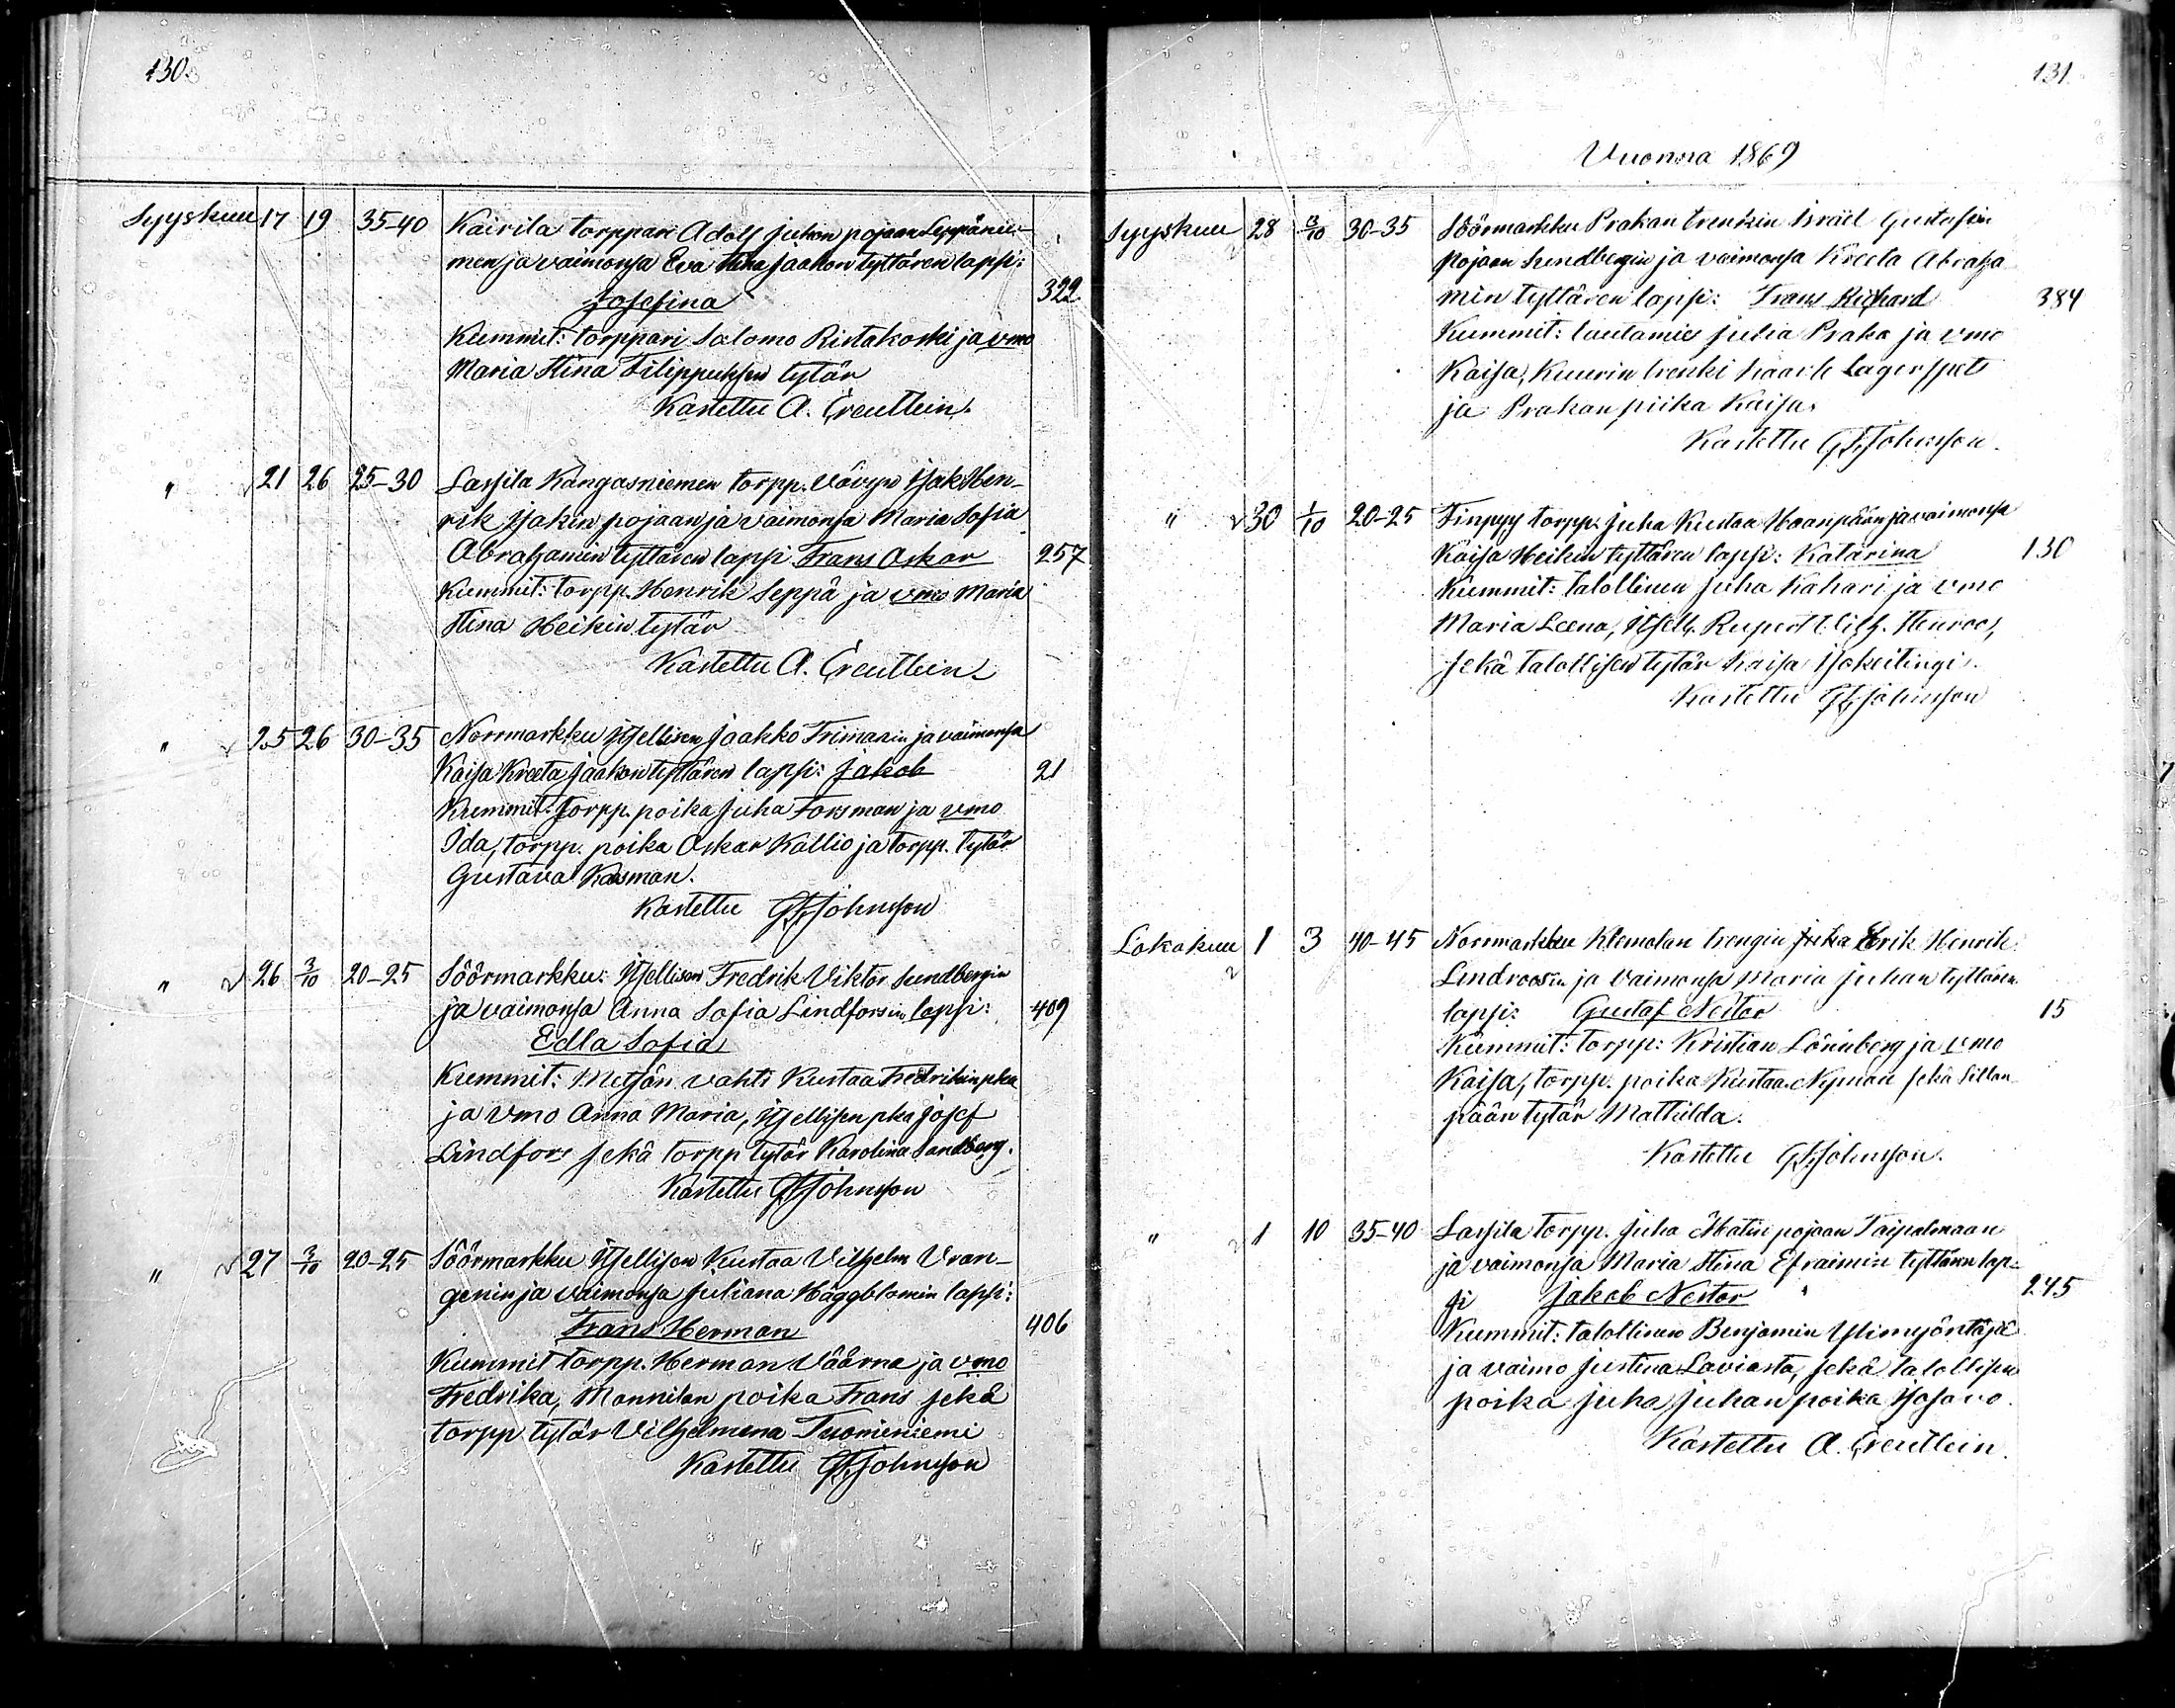 130.
Syyskuu 17 19 35-40 Kairila torppari Adolf Juhon pojaan Leppänie-
men ja vaimonsa Eva Stina Jaakon tyttären lapsi:
Josefina 322
Kummit: torppari Salomo Ristakoski ja vmo
Maria Stina Filippuksen tytär
Kastettu A. Creutlein.
" 21 26 25-30 Lassila Kangasniemen torpp. vävyn Isak Hen-
rik Isakin pojaan ja vaimonsa Maria Sofia
Abrahamin tyttären lapsi Frans Oskar 257
Kummit: torpp. Henrik Seppä ja vmo Maria
Stina Heikin tytär
Kastettu A. Creutlein
" 25 26 30-35 Norrmarkku Itsellisen Jaakko Frimanin ja vaimonsa
Kaisa Kreeta Jaakon tyttären lapsi: Jakob 21
Kummit: Torpp. poika Juha Forsman ja vmo
Ida, torpp. poika Oskar Kallio ja torpp. tytär
Gustava Kosman.
Kastettu G.F. Johnsson
" 26 3/10 20-25 Söörmarkku: Itsellisen Fredrik Viktor Sundbergin
ja vaimonsa Anna Sofia Lindforsin lapsi: 409
Edla Sofia
Kummit: Metsän vahti Kustaa Fredrikin pka
ja vmo Anna Maria, Itsellisen pka Josef
Lindfors sekä torpp tytär Karolina Sandberg.
Kastettu G.F. Johnsson
" 27 3/10 20-25 Söörmarkku Itsellisen Kustaa Vilhelm Vran-
genin ja vaimonsa Juliana Häggblomin lapsi:
Frans Herman 406
Kummit torpp. Herman Väärna ja vmo
Fredrika, Mannilan poika Frans sekä
torpp tytär Vilhelmena Tuominiemi
Kastettu G.F. Johnsson
131.
Vuonna 1869
Syyskuu 28 3/10 30-35 Söörmarkku Prakan trenkin Israel Gustafin
pojaan Sundbergin ja vaimonsa Kreeta Abraha
min tyttären lapsi: Frans Richard 384
Kummit: lautamies Juha Praka ja vmo
Kaisa, Kuurin trenki Kaarle Lagerspets
ja Prakan piika Kaisa.
Kastettu G.F. Johnsson.
" 30 1/10 20-25 Finpyy torpp. Juha Kustaa Haanpään ja vaimonsa
Kaisa Heikin tyttären lapsi: Katarina 130
Kummit: talollinen Juha Kahari ja vmo
Maria Leena, Itsell. Rupert Stenroos,
sekä talollisen tytär Kaisa
Kastettu G.F. Johnsson
Lokakuu 1 3 40-45 Norrmarkku Klemolan trengin Juha Erik Henrik
Lindroosin ja vaimonsa Maria Juhan tyttären
lapsi: Gustaf Nestor 15
Kummit: torpp: Kristian Lönnberg ja vmo
Kaisa, torpp. poika Kustaa Nyman sekä Sillan
pään tytär Mathilda.
Kastettu G.F. Johnsson.
" 1 10 35-40 Lassila torpp. Juha Matin pojaan Taipalmaan
ja vaimonsa Maria Stina Efraimin tyttären lap-
si Jakob Nestor 245
Kummit: talollinen Benjamin Ylimyöntäjä
ja vaimo Justina Laviasta, sekä talollisen
poika Juha Juhan poika Isosavo.
Kastettu A. Creutlein.